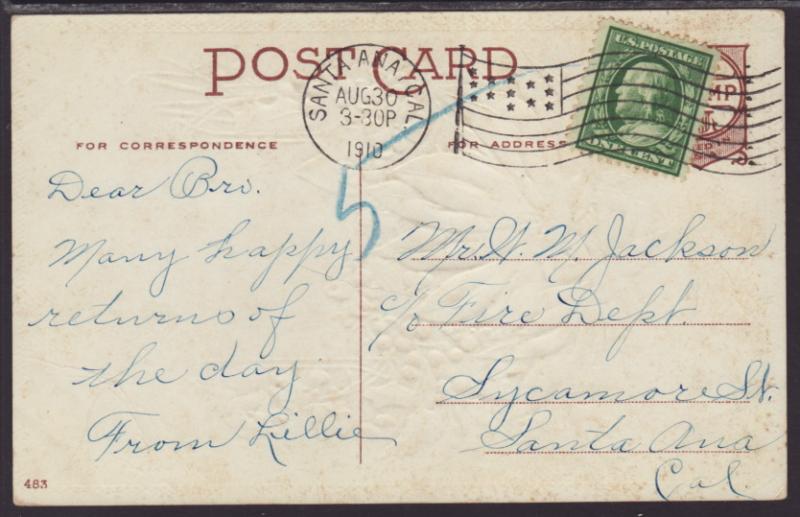 POST CARD
SANTA ANA, CAL.
AUG 30
3-30P
1910
U.S. POSTAGE
ONE CENT
MP
FOR CORRESPONDENCE
FOR ADDRESS
5
Dear Bro.
Many happy
returns of
the day.
From Lillie
Mr. W. M. Jackson
c/o Fire Dept.
Sycamore St.
Santa Ana
Cal.
483